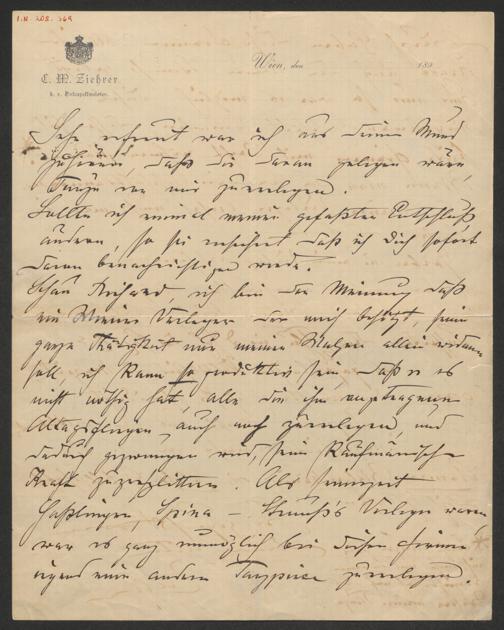 I.N. 208.369
C. M. Ziehrer
k. u. k. Hofcapellmeister.
Wien, den 189
Sehr erfreut war ich aus Deinem Mund
zu hören, daß Dir daran gelegen wäre,
Tänze von mir zu verlegen.
Sollte ich einmal meinen gefaßten Entschluß
ändern, so sei versichert daß ich Dich sofort
davon benachrichtigen werde.
Schau Richard, ich bin der Meinung daß
ein Wiener Verleger der mich besitzt, seine
ganze Tätigkeit nur meinen Walzern allein widmen
soll, ich kann so produktiv sein, daß er es
nicht nötig hat, alle die ihm angetragenen
auch noch zu verlegen, und
dadurch gezwungen wird, seine Kaufmännische
Kraft zu zersplittern. Als seinerzeit
Haßlinger, Spina – Strauß's Verleger waren,
war es ganz unmöglich bei diesen Firmen
irgend eine andere Tanzpiece zu verlegen.